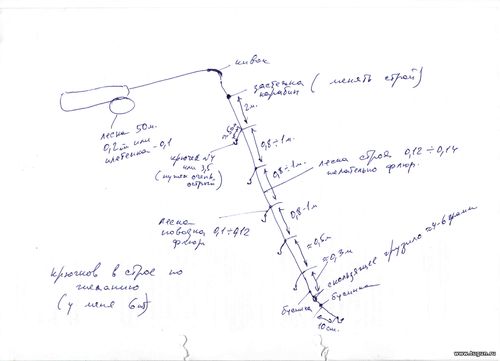 кивок
застёжка ( менять строй)
карабин
2м.
леска 50м.
0,2 или
плетёнка - 0,1
≈6см
0,8÷1м.
крючек №4
или 3,5
(нужен очень
острый)
0,8÷1м.
леска строя 0,12÷0,14
желательно флюр.
0,8-1м
леска
поводка 0,1÷0,12
флюр.
≈0,6м
≈0,3м
скользящее грузило ≈4-6 грамм
крючков в строе по
желанию
(у меня 6шт)
бусинка
бусинка
10см.
www.tugun.ru